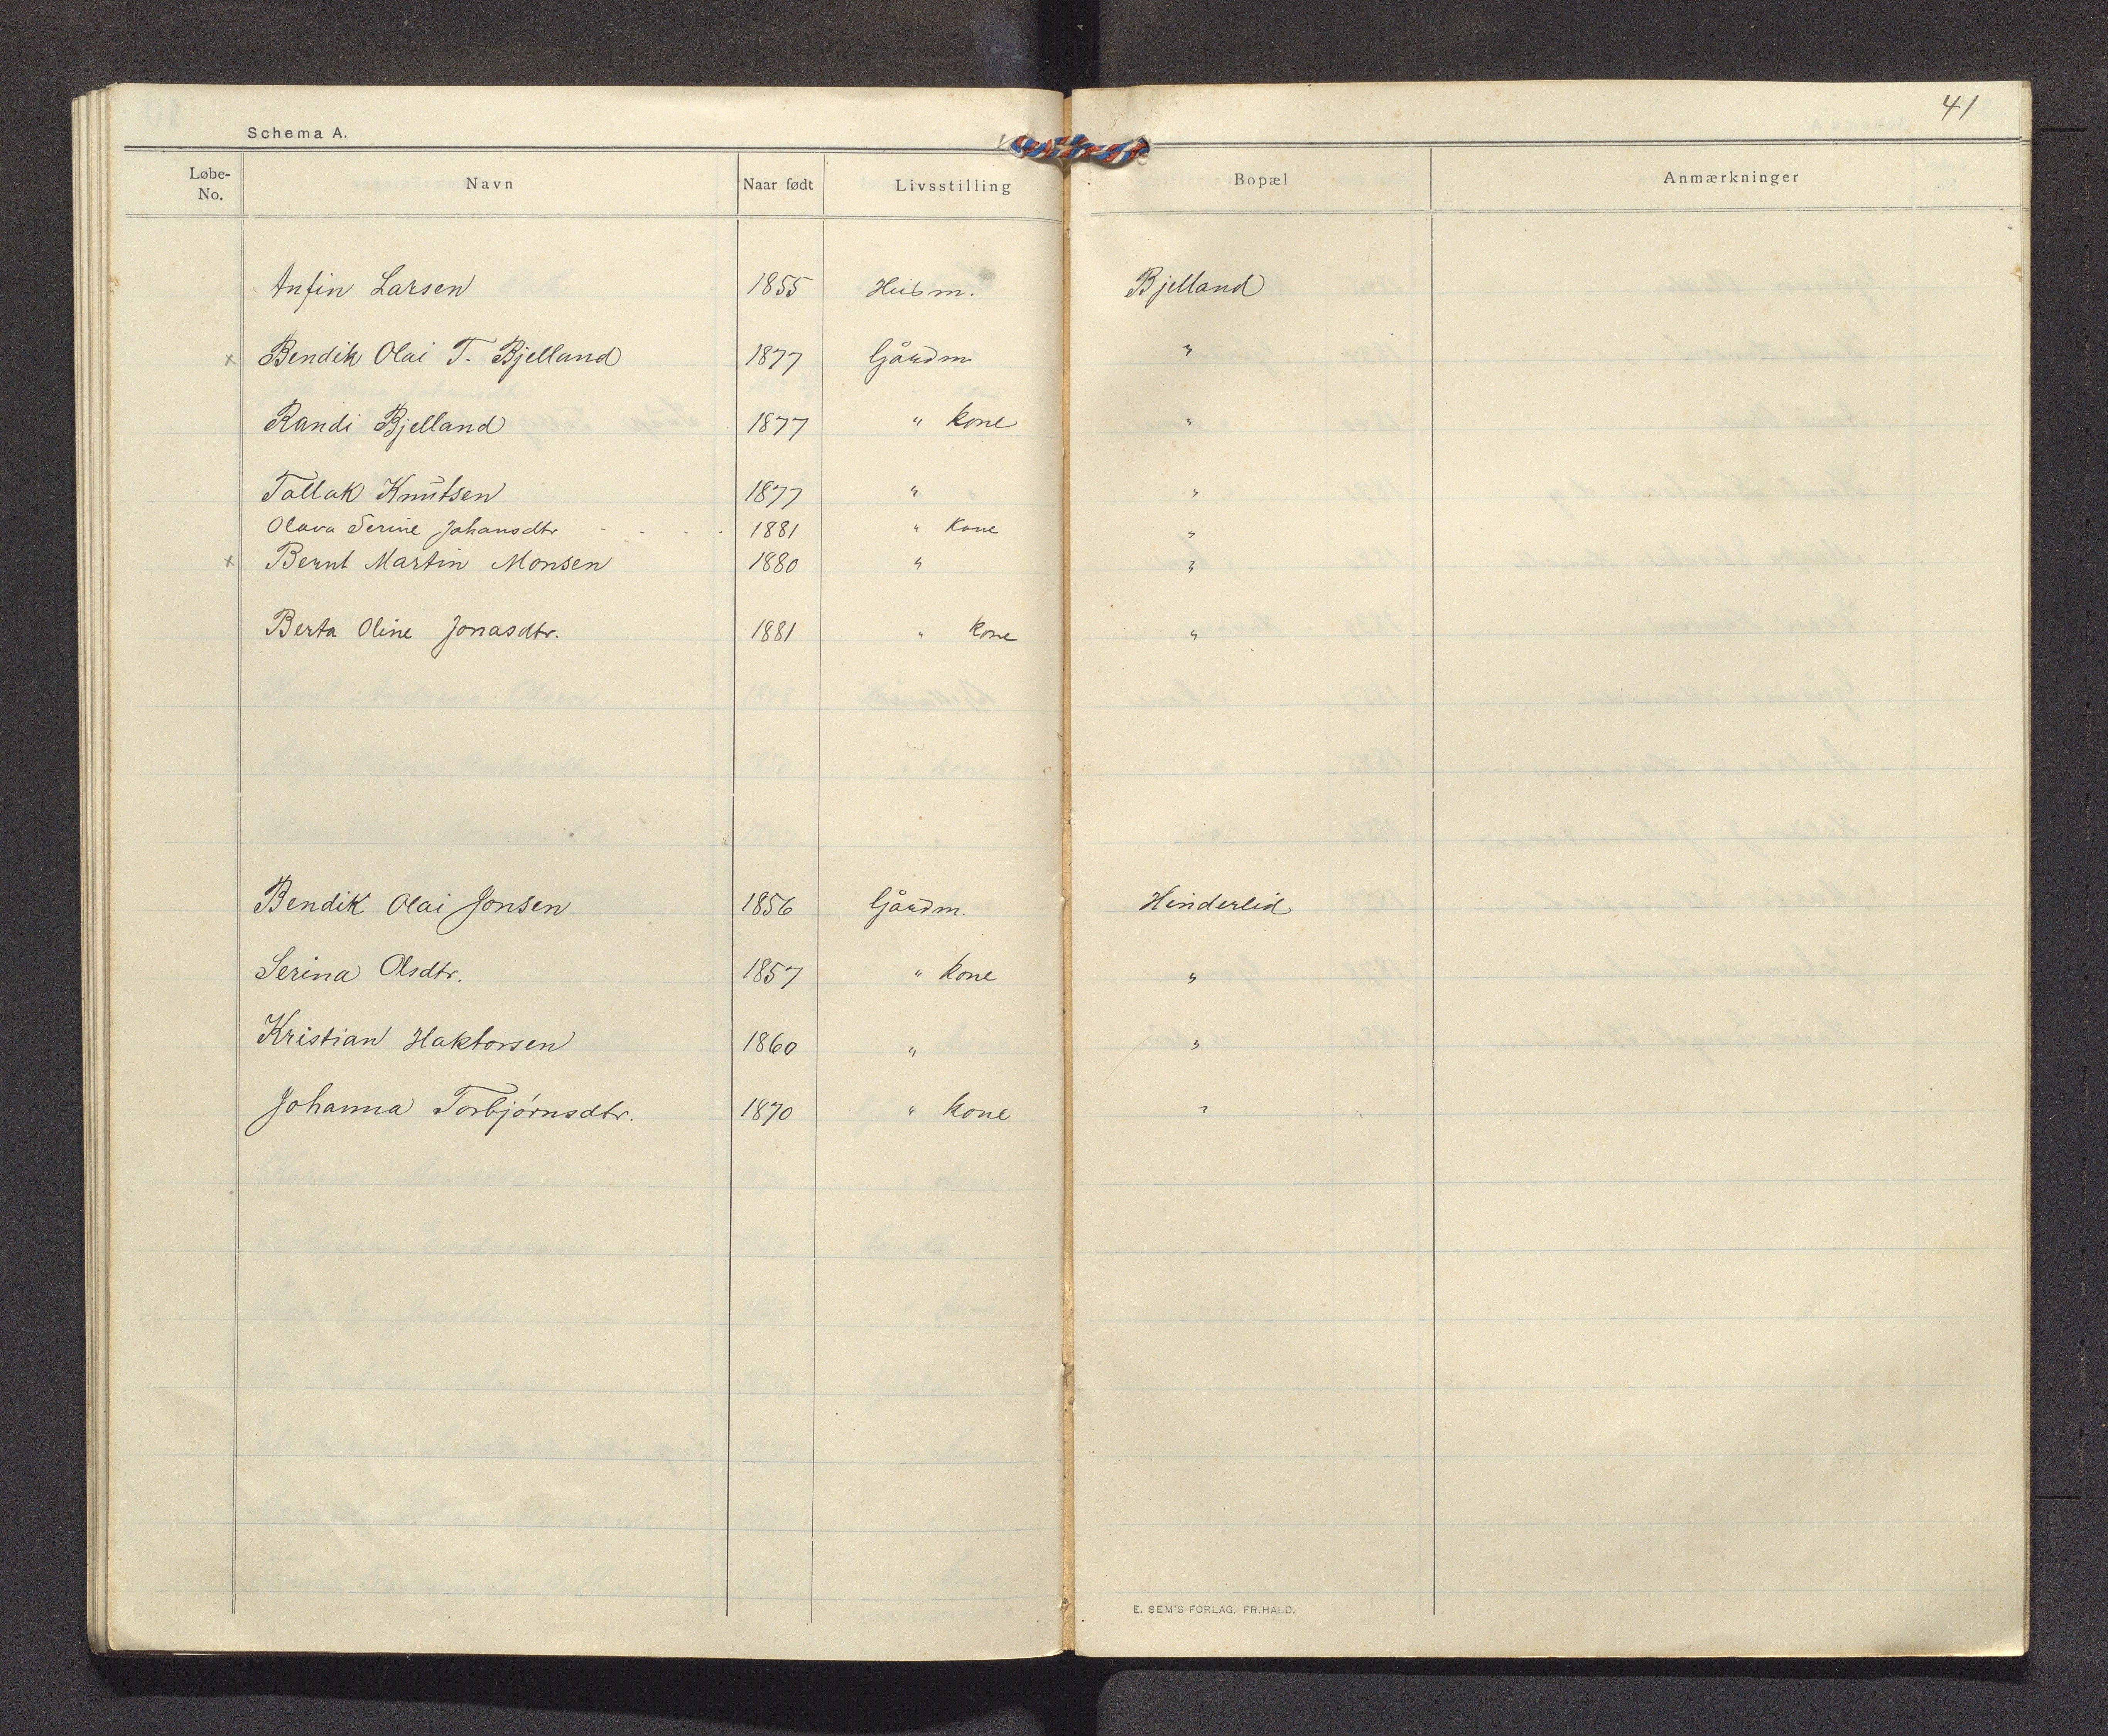 41
Schema A.
Løbe-No. Navn Naar født Livsstilling Bopæl Anmærkninger
Anfin Larsen 1855 Husm. Bjelland
x Bendik Olai T. Bjelland 1877 Gårdm "
Randi Bjelland 1877 " kone "
Tallak Knutsen 1877 " "
Olava Serine Johansdtr - - - . 1881 " Kone "
x Bernt Martin Monsen 1880 " "
Berta Oline Jonasdtr. 1881 " kone "
Bendik Olai Jonsen 1856 Gårdm. Hinderlid
Serina Olsdtr. 1857 " kone "
Kristian Haktorsen 1860 " "
Johanna Torbjørnsdtr. 1870 " kone "
E. SEM'S FORLAG, FR.HALD.